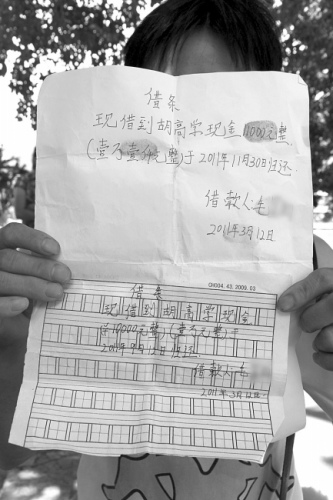 借条
现借到胡高学现金11000元整.
(壹万壹仟元整)于2011年11月30日归还.
借款人:毛
2011年3月12日
CH034. A3. 2009. 03
借条
现借到胡高学现金
10000元整,(壹万元整)于
2011年9月12日归还.
借款人:毛
2011年3月12日